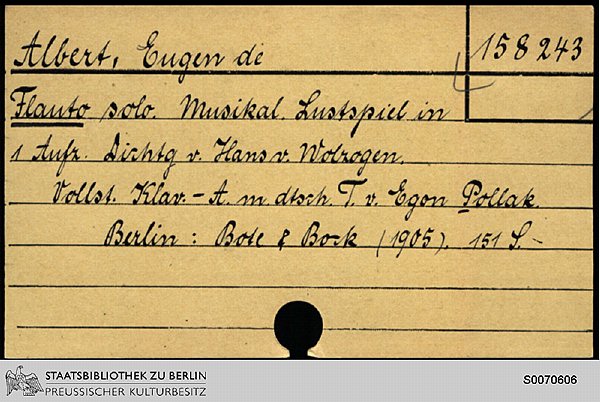 Albert, Eugen de
158 243
Flauto solo. Musikal. Lustspiel in
1 Aufz. Dichtg v. Hans v. Wolzogen.
Vollst. Klav. - A. m. dtsch. T. v. Egon Pollak.
Berlin : Bote & Bock (1905). 151 S. -
STAATSBIBLIOTHEK ZU BERLIN
PREUSSISCHER KULTURBESITZ
S0070606